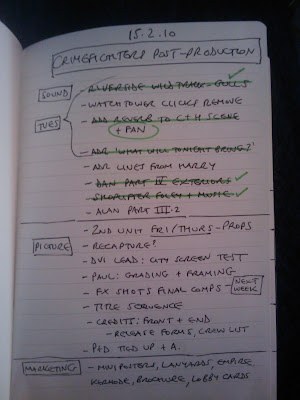 15.2.10
CRIMEFIGHTERS POST-PRODUCTION
SOUND
TUES
- RIVERSIDE WILDTRACK - GULLS
- WATCHTOWER CLICKS REMOVE
- ADD REVERB TO C+H SCENE
+ PAN
- ADR 'WHAT WILL TONIGHT BRING?'
- ADR LINES FROM HARRY
- DAN PART IV EXTERIORS
- SHOPLIFTER FOLEY + MUSIC
- ALAN PART III.2
PICTURE
- 2ND UNIT FRI/THURS - PROPS
- RECAPTURE?
- DVI LEAD: CITY SCREEN TEST
- PAUL: GRADING + FRAMING
- FX SHOTS FINAL COMPS - NEXT WEEK
- TITLE SEQUENCE
- CREDITS: FRONT + END
- RELEASE FORMS, CREW LIST
- P+D TIED UP + A.
MARKETING
- MINIPOSTERS, LANYARDS, EMPIRE,
KERMODE, BROCHURE, LOBBY CARDS